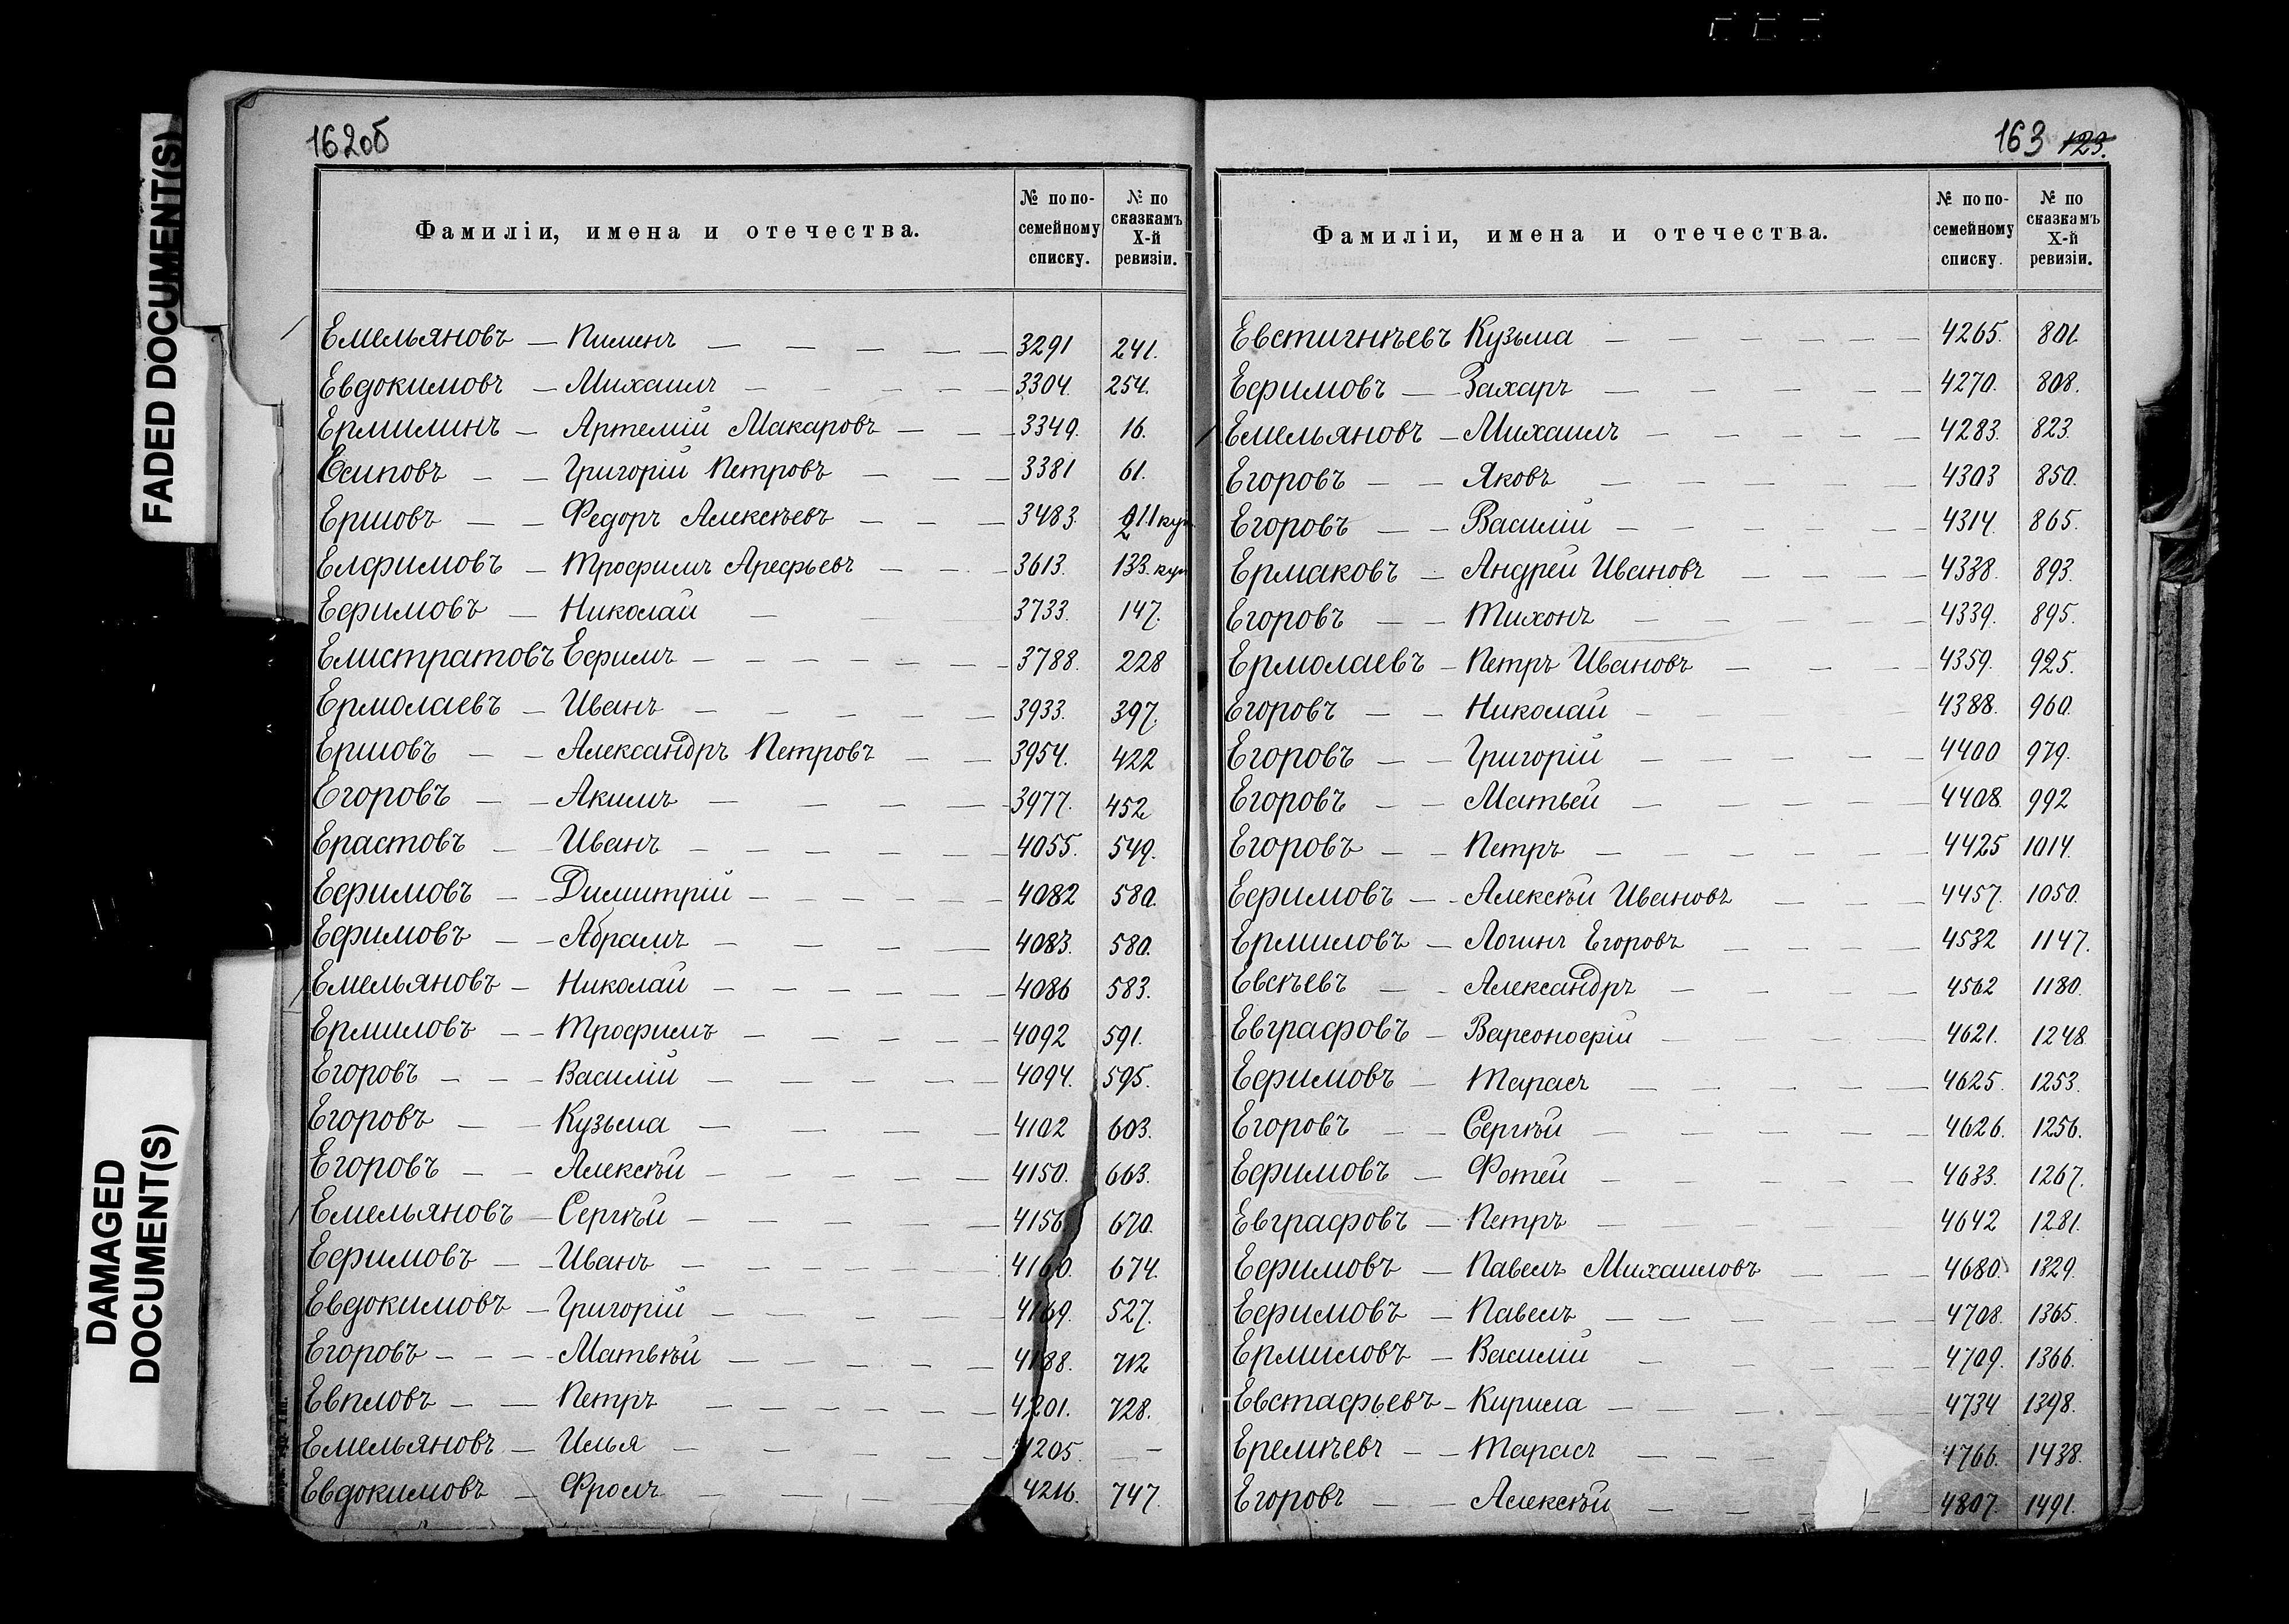 FADED DOCUMENT(S)
DAMAGED
DOCUMENT(S)
162об
Фамиліи, имена и отечества.
№ по по-
семейному
списку.
№ по
сказкамъ
X-й
ревизіи.
Емельяновъ — Пименъ — 3291 241.
Евдокимовъ — Михаилъ — 3304. 254.
Ермилинъ — Артемій Макаровъ — 3349. 16.
Есиповъ — Григорій Петровъ — 3381 61.
Ершовъ — Федоръ Алексѣевъ — 3483.
Елфимовъ — Трофимъ Арефьевъ — 3613. 133. куп
Ефимовъ — Николай — 3733. 147.
Елистратовъ Ефимъ — 3788. 228
Ермолаевъ — Иванъ — 3933. 397.
Ершовъ — Александръ Петровъ — 3954. 422
Егоровъ — Акимъ — 3977. 452
Ерастовъ — Иванъ — 4055. 549.
Ефимовъ — Димитрій — 4082 580.
Ефимовъ — Абрамъ — 4083. 580.
Емельяновъ — Николай — 4086 583.
Ермиловъ — Трофимъ — 4092 591.
Егоровъ — Василій — 4094. 595.
Егоровъ — Кузьма — 4102 603.
Егоровъ — Алексѣй — 4150. 663.
Емельяновъ — Сергѣй — 4156 670.
Ефимовъ — Иванъ — 4160. 674.
Евдокимовъ — Григорій — 4169. 527.
Егоровъ — Матвѣй — 4188. 712
Евпловъ — Петръ — 4201. 728.
Емельяновъ — Илья — 4205. —
Евдокимовъ — Фролъ — 4216. 747.
163 123.
Фамиліи, имена и отечества.
№ по по-
семейному
списку.
№ по
сказкамъ
X-й
ревизіи.
Евстигнѣевъ Кузьма — 4265. 801
Ефимовъ — Захаръ — 4270. 808.
Емельяновъ — Михаилъ — 4283. 823.
Егоровъ — Яковъ — 4303 850.
Егоровъ — Василій — 4314. 865.
Ермаковъ — Андрей Ивановъ — 4338. 893.
Егоровъ — Тихонъ — 4339. 895.
Ермолаевъ — Петръ Ивановъ — 4359. 925.
Егоровъ — Николай — 4388. 960.
Егоровъ — Григорій — 4400 979.
Егоровъ — Матвей — 4408. 992
Егоровъ — Петръ — 4425 1014.
Ефимовъ — Алексѣй Ивановъ — 4457. 1050.
Ермиловъ — Логинъ Егоровъ — 4532 1147.
Евсѣевъ — Александръ — 4562 1180.
Евграфовъ — Варсонофій — 4621. 1248.
Ефимовъ — Тарасъ — 4625. 1253.
Егоровъ — Сергѣй — 4626. 1256.
Ефимовъ — Фотей — 4633. 1267.
Евграфовъ — Петръ — 4642 1281.
Ефимовъ — Павелъ Михаиловъ — 4680. 1329.
Ефимовъ — Павелъ — 4708. 1365.
Ермиловъ — Василій — 4709. 1366.
Евстафьевъ — Кирила — 4734 1398.
Еремѣевъ — Тарасъ — 4766. 1438.
Егоровъ — Алексѣй — 4807. 1491.